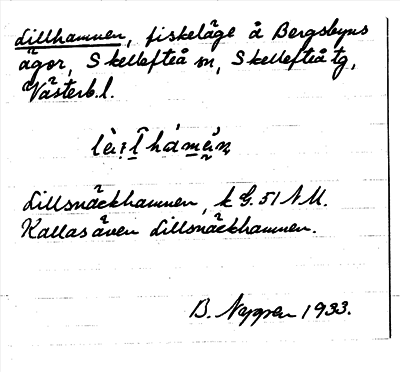 Lillhamnen, fiskeläge å Bergsbyns
ägor, Skellefteå sn, Skellefteå tg,
Västerb. l.
Lillsnäckhamnen, k G. 51 N M.
Kallas även Lillsnäckhamnen.
B. Nygren 1933.